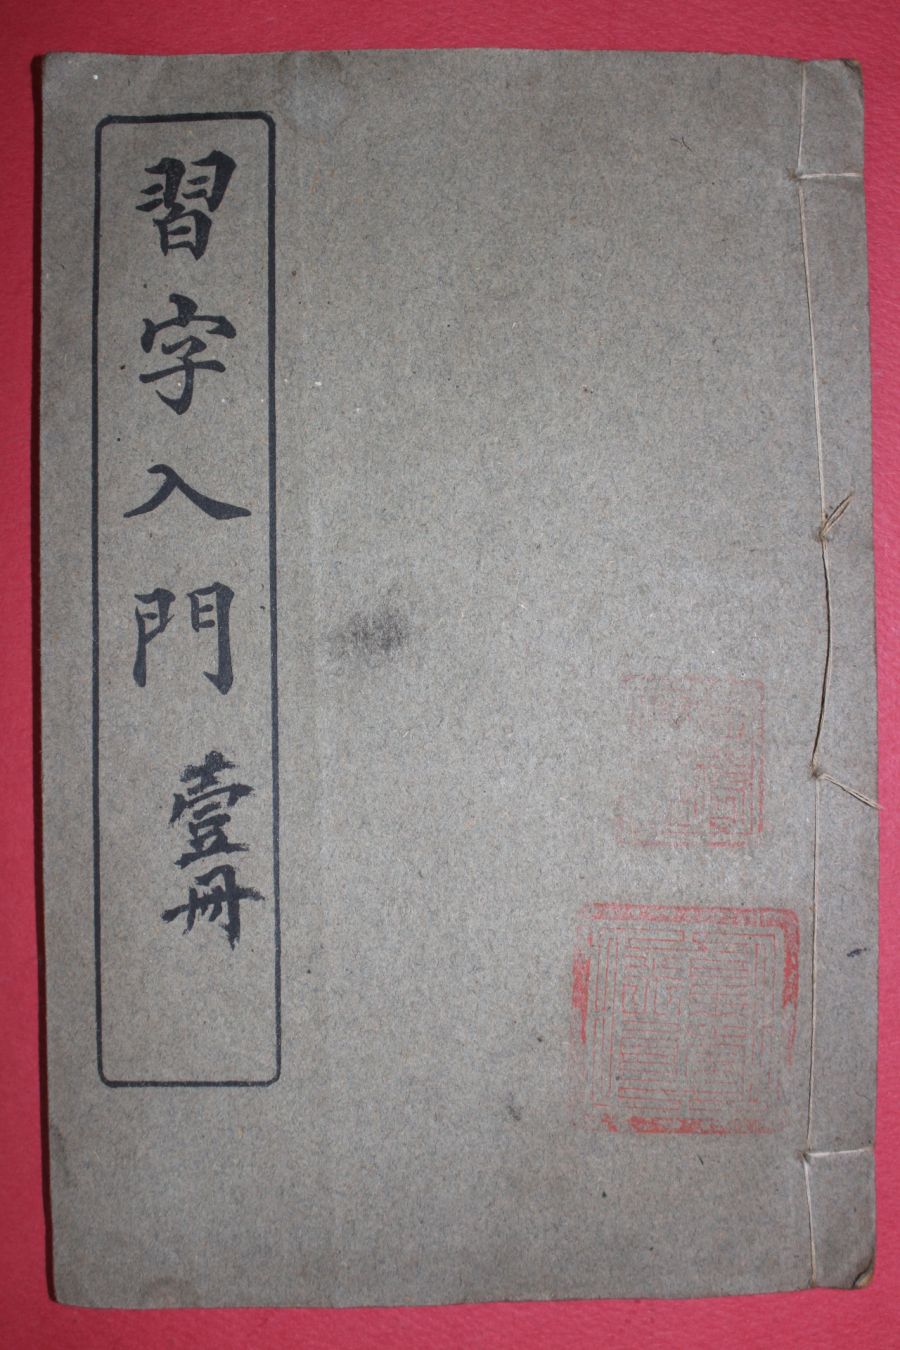 習字入門
壹冊